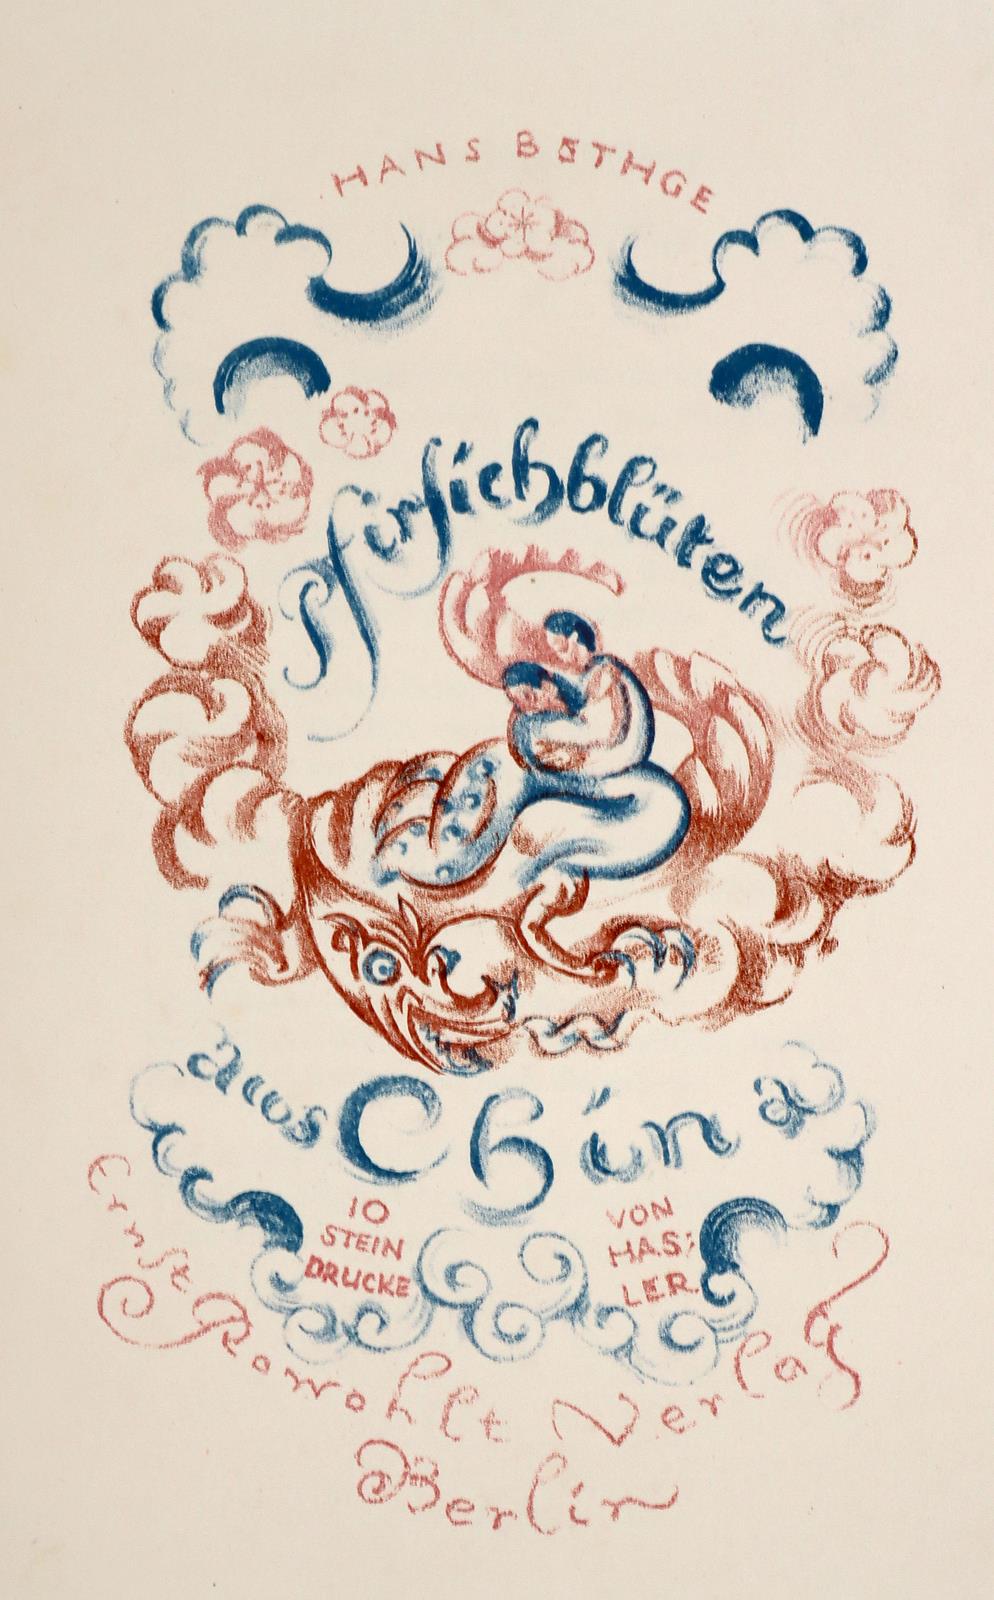 HANS BETHGE
Pfirsichblüten
aus China
10
STEIN
DRUCKE
VON
HAS=
LER
Ernst Rowohlt Verlag
Berlin